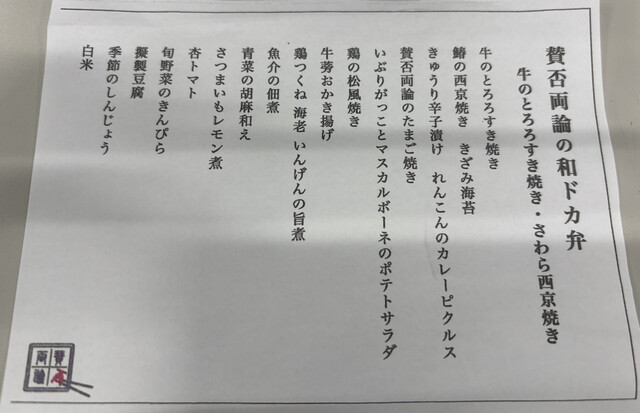 賛否両論の和ドカ弁
牛のとろろすき焼き・さわら西京焼き
牛のとろろすき焼き
鰆の西京焼き きざみ海苔
きゅうり辛子漬け れんこんのカレーピクルス
賛否両論のたまご焼き
いぶりがっことマスカルポーネのポテトサラダ
鶏の松風焼き
牛蒡おかき揚げ
鶏つくね 海老 いんげんの旨煮
魚介の佃煮
青菜の胡麻和え
さつまいもレモン煮
杏トマト
旬野菜のきんぴら
擬製豆腐
季節のしんじょう
白米
賛否
両論